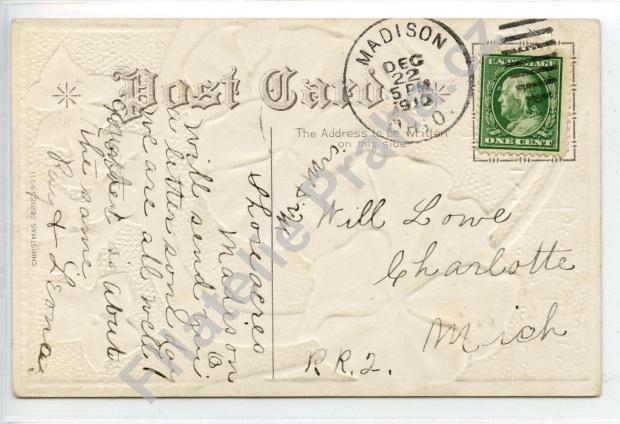 Post Card
The Address to be Written
on this side
CHRISTMAS SERIES NO. 11
MADISON
DEC
22
5 PM
1910
U.S. POSTAGE
ONE CENT
Shoreacres
Madison O
Will send you
a letter some day
We are all well
Grandma is about
the same
Ray & Leona.
Will Lowe
Charlotte
Mich
R.R.2.
Filatelie Praha.cz